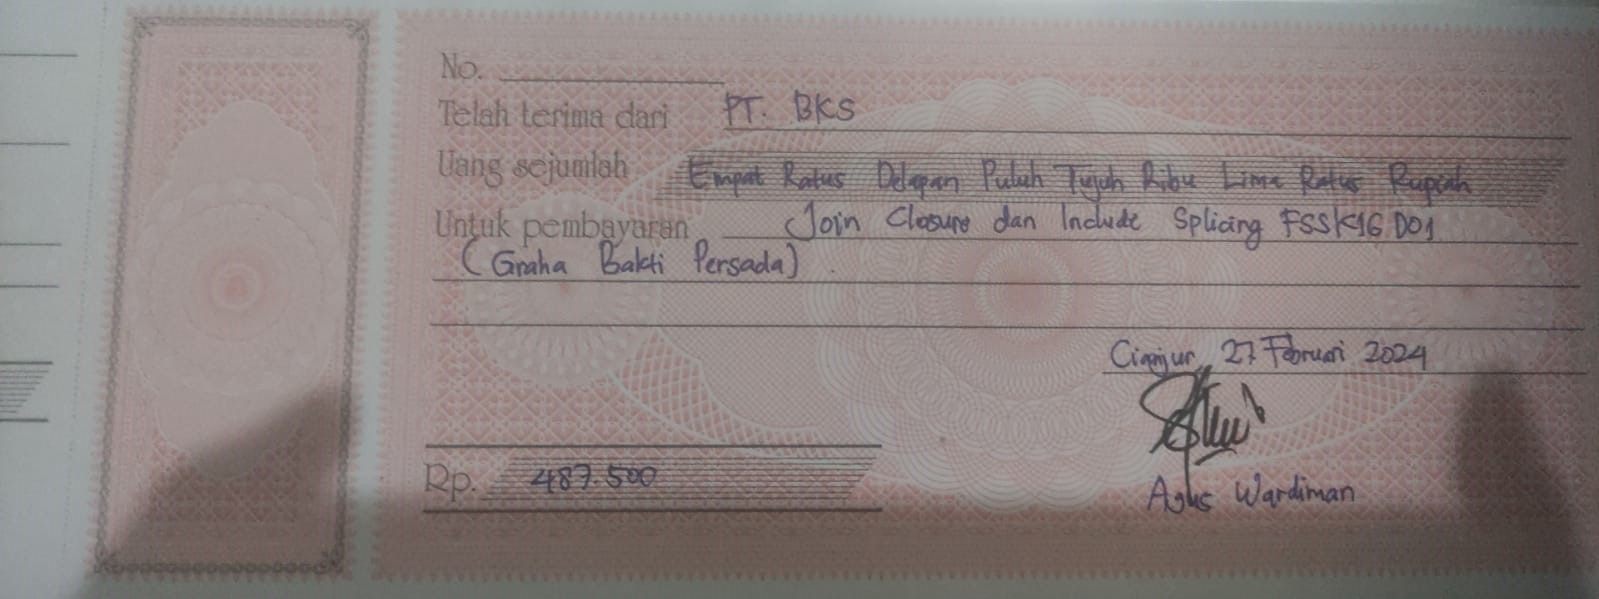 No.
Telah terima dari PT. BKS
Uang sejumlah Empat Ratus Delapan Puluh Tujuh Ribu Lima Ratus Rupiah
Untuk pembayaran Join Closure dan Include Splicing FSSK16 D01
(Graha Bakti Persada)
Cianjur, 27 Februari 2024
Rp. 487.500
Agus Wardiman